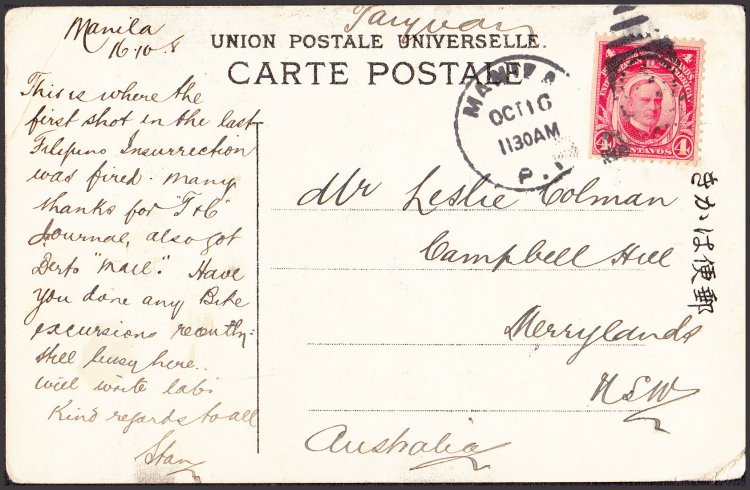 Manila
16.10.8
UNION POSTALE UNIVERSELLE.
CARTE POSTALE
This is where the
first shot in the last
Filipino Insurrection
was fired. Many
thanks for "T & C"
Journal, also got
Berto "Mail". Have
you done any Bike
excursions recently:
Still busy here..
will write later
Kind regards to all
Stan
MANILA
OCT 16
1130AM
P.I.
4 4
4 CENTAVOS 4
Mr Leslie Colman
Campbell Hill
Merrylands
NSW
Australia
きかは便郵